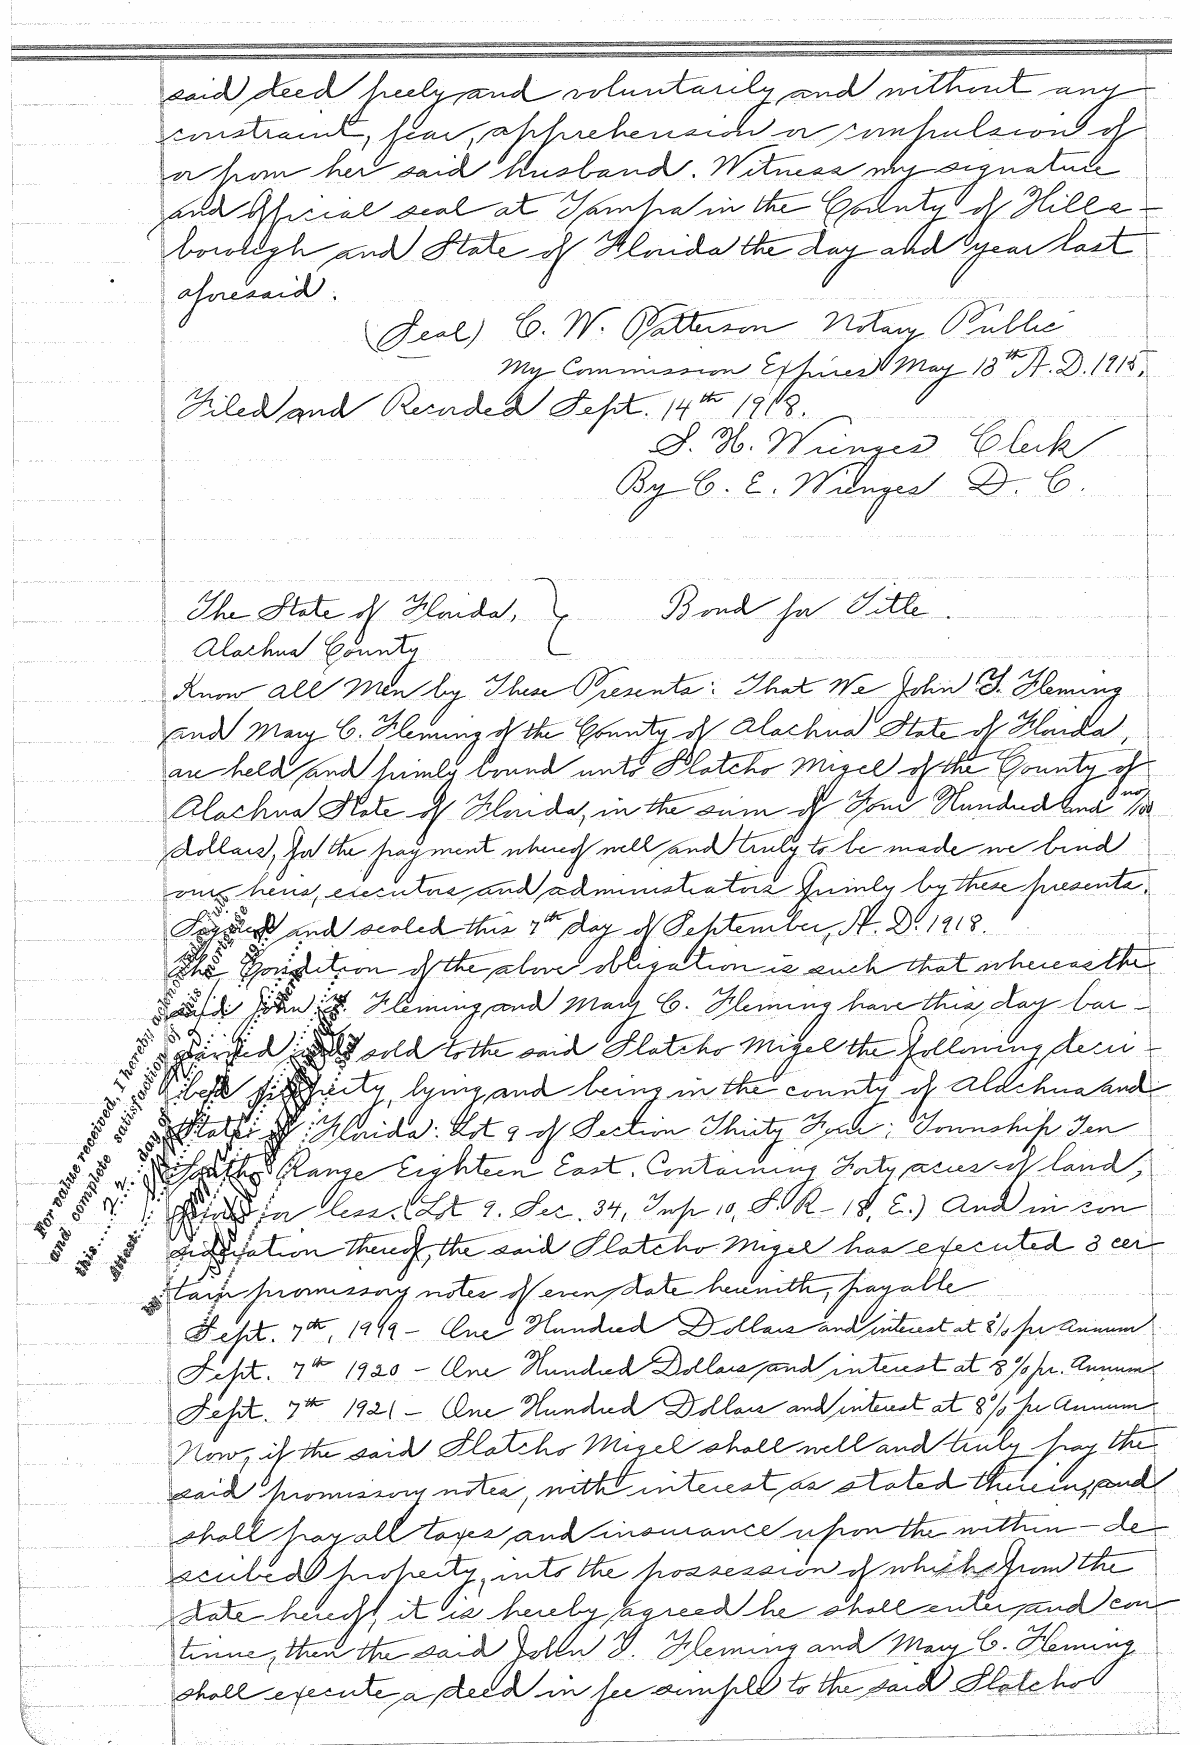 said deed freely and voluntarily and without any
constraint, fear, apprehension or compulsion of
or from her said husband. Witness my signature
and Official seal at Tampa in the County of Hills-
borough and State of Florida the day and year last
aforesaid.
(Seal) C. W. Patterson Notary Public
My Commission Expires May 13th A.D. 1915.
Filed and Recorded Sept. 14th 1918.
S. H. Wienges Clerk
By C. E. Wienges D. C.
The State of Florida, } Bond for Title.
Alachua County
Know all Men by These Presents: That We John T. Fleming
and Mary C. Fleming of the County of Alachua State of Florida,
are held and firmly bound unto Slatcho Migel of the County of
Alachua State of Florida, in the sum of Four Hundred and no/100
dollars, for the payment whereof well and truly to be made we bind
our heirs, executors and administrators firmly by these presents.
Signed and sealed this 7th day of September, A. D. 1918.
The Condition of the above obligation is such that whereas the
said John T. Fleming and Mary C. Fleming have this day bar-
gained and sold to the said Slatcho Migel the following descri-
bed property, lying and being in the county of Alachua and
State of Florida: Lot 9 of Section Thirty Four; Township Ten
South Range Eighteen East. Containing Forty acres of land,
more or less. (Lot 9. Sec. 34, Twp 10, S. R- 18, E.) And in con
sideration thereof, the said Slatcho Migel has executed 3 cer-
tain promissory notes of even date herewith, payable
Sept. 7th, 1919 - One Hundred Dollars and interest at 8% per Annum
Sept. 7th 1920 - One Hundred Dollars and interest at 8% pr. Annum
Sept. 7th 1921 - One Hundred Dollars and interest at 8% pr Annum
Now, if the said Slatcho Migel shall well and truly pay the
said promissory notes, with interest as stated therein, and
shall pay all taxes and insurance upon the within-de-
scribed property, into the possession of which from the
date hereof, it is hereby agreed he shall enter and con
tinue, then the said John T. Fleming and Mary C. Fleming
shall execute a deed in fee simple to the said Slatcho
For value received, I hereby acknowledge full
and complete satisfaction of this mortgage
this 22 day of
Attest: